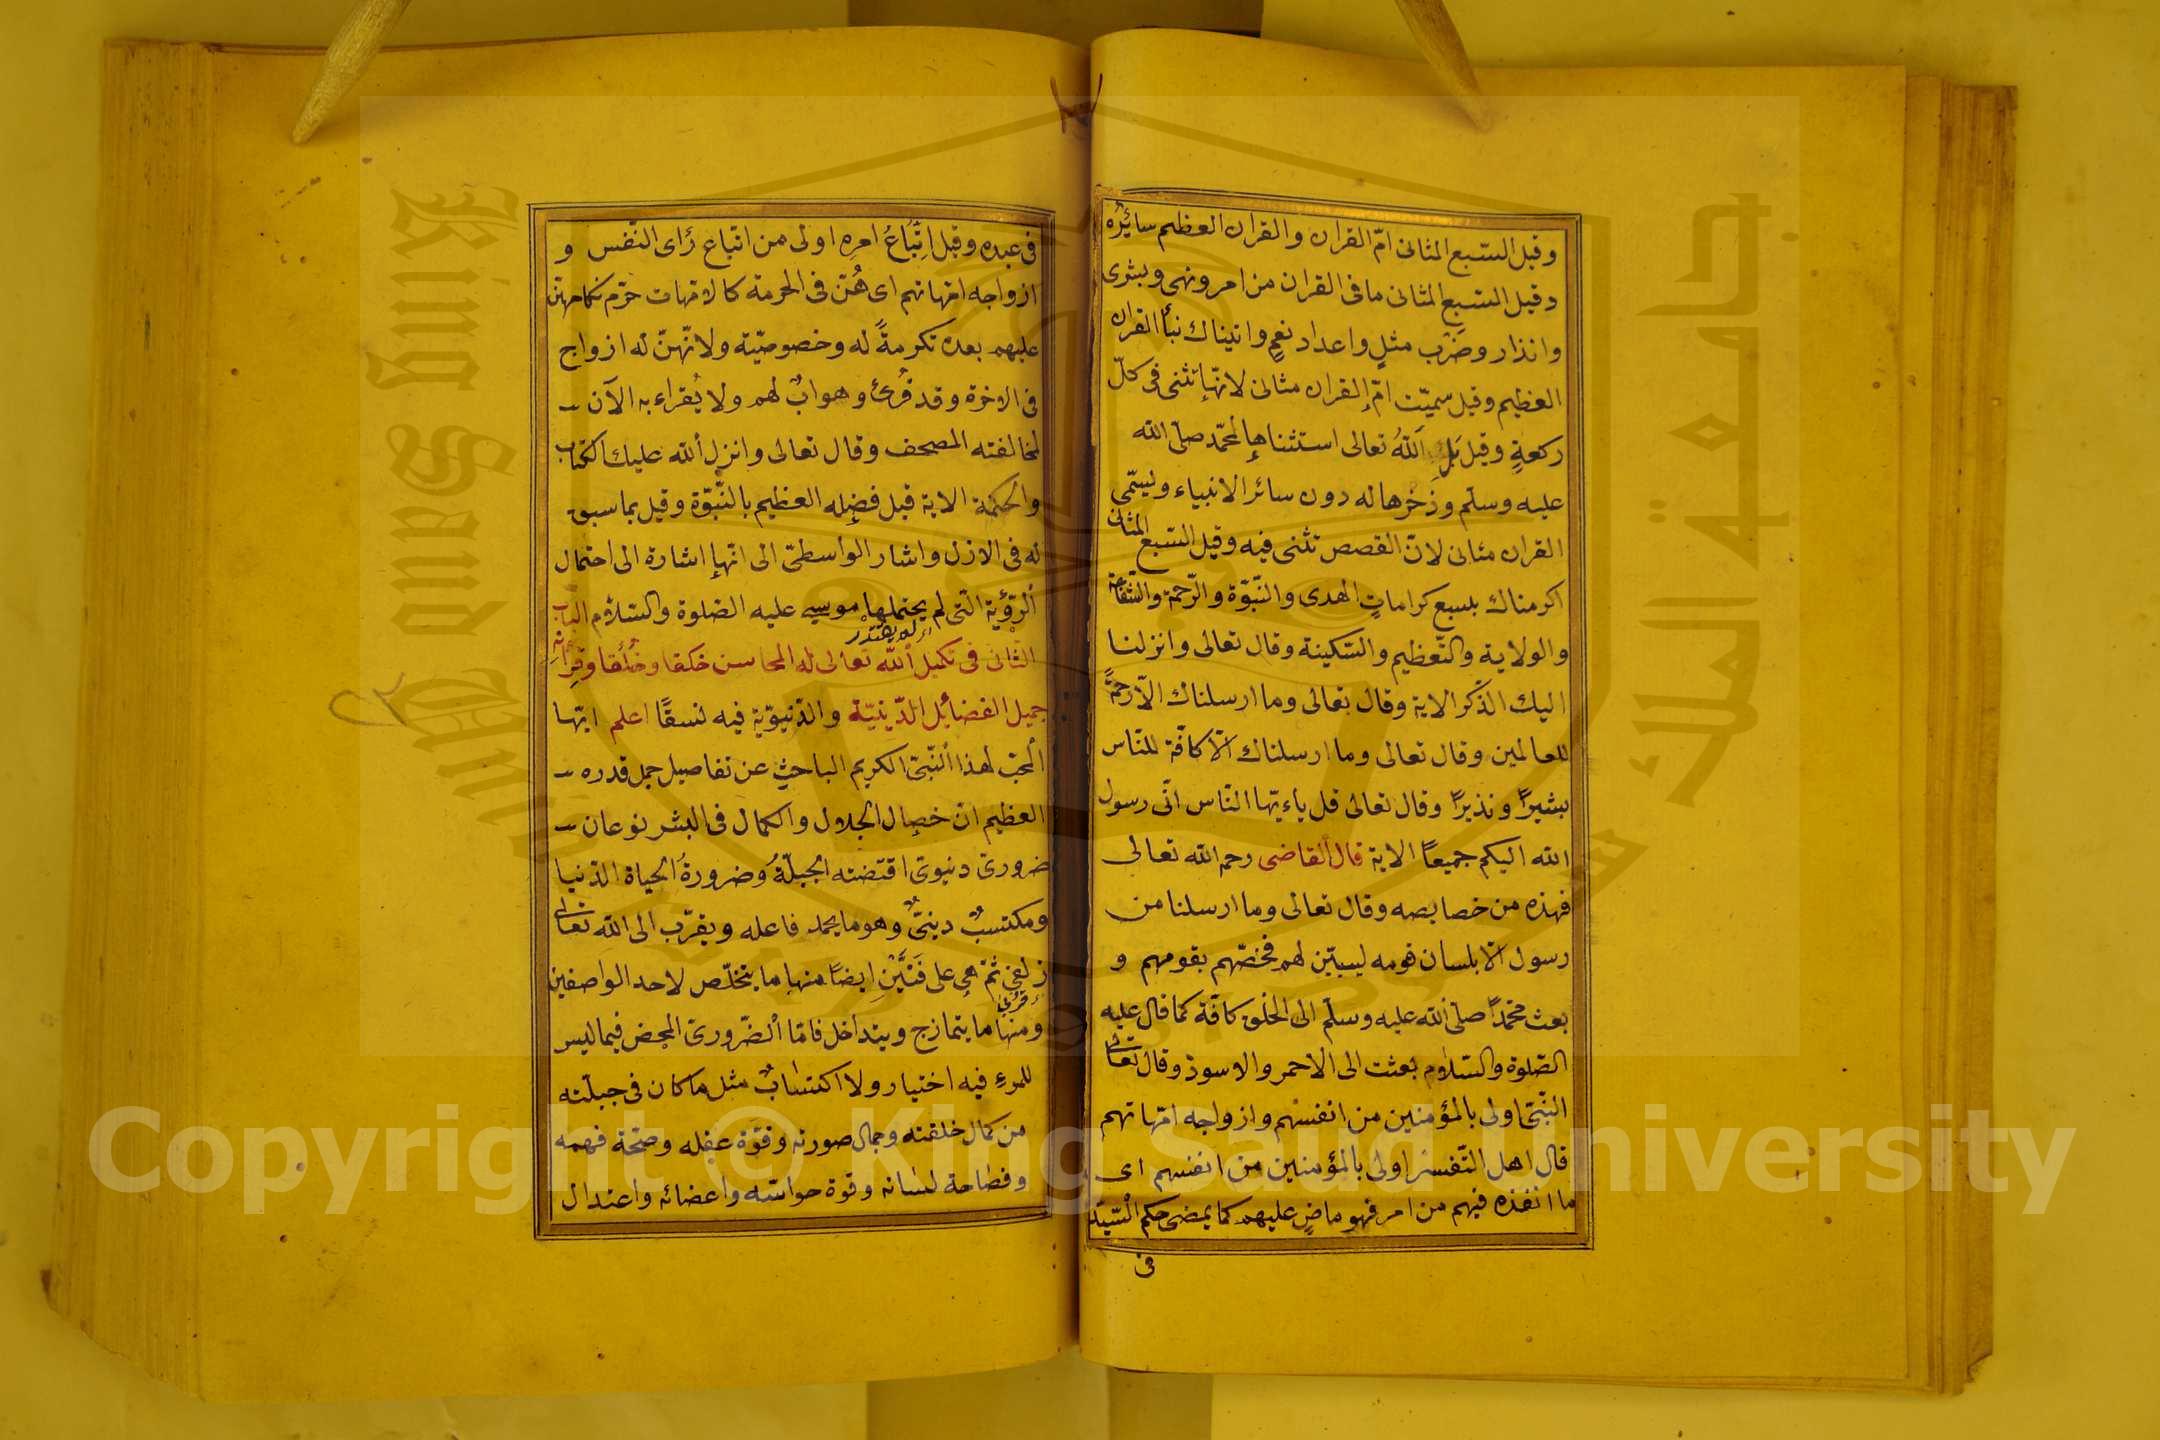 وقيل السّبع المثانى امّ القران والقران العظيم سائرُه
وقيل السّبع المثانى ما فى القران من امر ونهى وبشرى
وانذار وضَرْب مثلٍ واعداد نعمٍ واتيناك نبأ القران
العظيم وقيل سميّت امّ القران مثانى لانّها تثنى فى كلّ
ركعةٍ وقيل بَلِ اَللّٰهُ تعالى استثناها لمحمّد صلّى الله
عليه وسلّم وذخرها له دون سائر الانبياء ويسمّى
القران مثانى لانّ القصص تثنى فيه وقيل السّبع المثانى
اكرمناك بسبع كراماتٍ الهدى والنّبوّة والرّحمة والشّفاعة
والولاية والتّعظيم والسّكينة وقال تعالى وانزلنا
اليك الذّكر الاية وقال تعالى وما ارسلناك الّا رحمةً
للعالمين وقال تعالى وما ارسلناك الّا كافّة للنّاس
بشيرًا ونذيرًا وقال تعالى قل ياءيّها النّاس انّى رسول
الله اليكم جميعًا الاية قال القاضى رحمه الله تعالى
فهذه من خصايصه وقال تعالى وما ارسلنا من
رسول الّا بلسان قومه ليبيّن لهم فخصّهم بقومهم و
بعث محمّدًا صلّى الله عليه وسلّم الى الخلق كافّة كما قال عليه
الصّلوة والسّلام بعثت الى الاحمر والاسود وقال تعالى
النّبىّ اولى بالمؤمنين من انفسهم وازواجه امّهاتهم
قال اهل التّفسير اولى بالمؤمنين من انفسهم اى
ما انفذه فيهم من امر فهو ماضٍ عليهم كما يمضى حكم السّيّد
فى
فى عبده وقيل اِتّباعُ امره اولى من اتباع رأى النّفس و
ازواجه امّهاتهم اى هُنّ فى الحرمة كالامّهات حرّم نكاحهنّ
عليهم بعده تكرمةً له وخصوصيّة ولانّهنّ له ازواج
فى الاخرة وقد قُرئ وهو ابٌ لهم ولا يُقراء به الآن
لمخالفته المصحف وقال تعالى وانزل الله عليك الكتاب
والحكمة الاية قيل فضله العظيم بالنّبوّة وقيل بما سبق
له فى الازل واشار الواسطىّ الى انّها اشارة الى احتمال
الرّؤية الّتى لم يحتملها موسى عليه الصلوة والسّلام الباب
الثّانى فى تكميل الله تعالى له المحاسن خَلقا وخُلُقا وقِرانه
جميل الفضائل الدّينيّة والدّنيويّة فيه نسقًا اعلم ايّها
المحبّ لهذا النّبىّ الكريم الباحث عن تفاصيل جمل قدره
العظيم انّ خصال الجلال والكمال فى البشر نوعان
ضرورىّ دنيوىّ اقتضته الجبلّةُ وضرورةُ الحياة الدّنيا
ومكتسبٌ دينىٌّ وهو ما يحمد فاعله ويقرّب الى الله تعالى
زلفى ثمّ هى على فَنَّيْنِ ايضًا منها ما يتخلّص لاحد الوصفين
ومنها ما يتمازج ويتداخل فامّا الضّرورىّ المحض فيما ليس
للمرءِ فيه اختيار ولا اكتسابٌ مثل ما كان فى جبلّته
من كمال خلقته وجمال صورته وقوّة عقله وصحّة فهمه
وفصاحة لسانه وقوة حواسّه واعضائه واعتدال
King Saud University
جامعة الملك سعود
Copyright © King Saud University